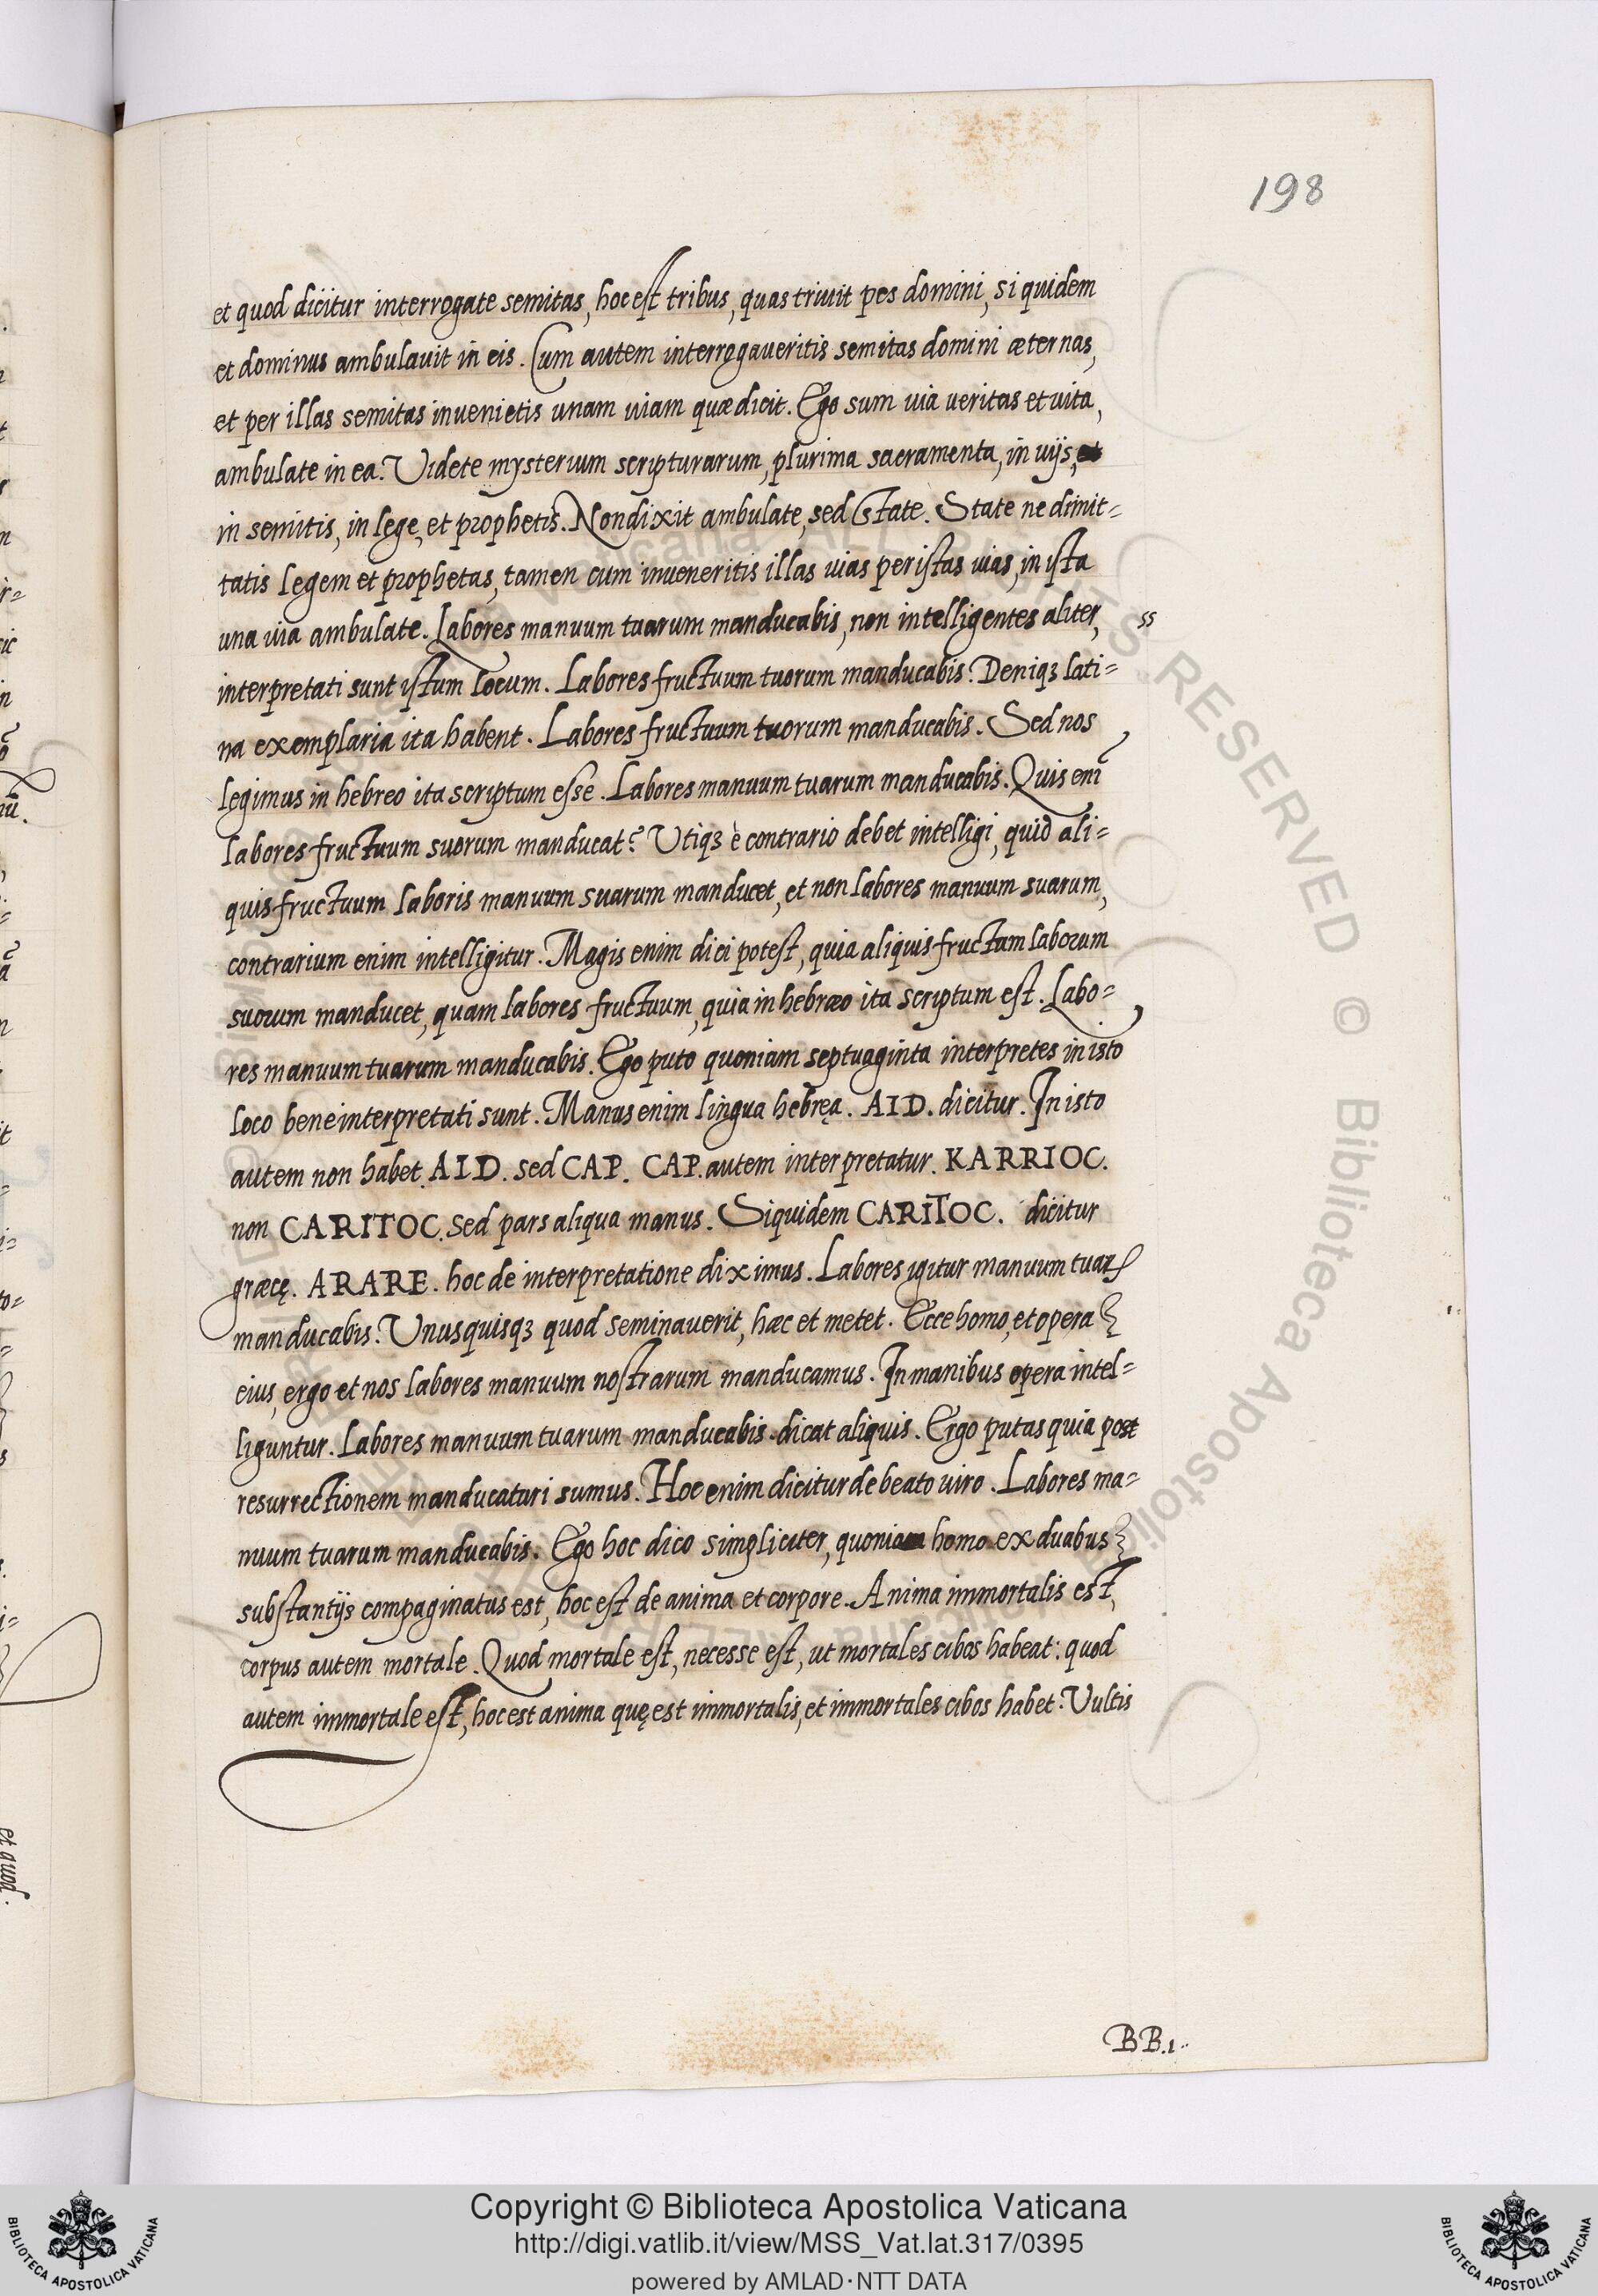 198
et quod dicitur interrogate semitas, hoc est tribus, quas triuit pes domini, si quidem
et dominus ambulauit in eis. Cum autem interrogaueritis semitas domini æternas,
et per illas semitas inuenietis unam uiam quæ dicit. Ego sum uia ueritas et uita,
ambulate in ea. Videte mysterium scripturarum, plurima sacramenta, in uijs,
in semitis, in lege, et prophetis. Non dixit ambulate, sed state. State ne dimit=
tatis legem et prophetas, tamen cum inueneritis illas uias per istas uias, in ista
una uia ambulate. Labores manuum tuarum manducabis, non intelligentes aliter, ss
interpretati sunt istum locum. Labores fructuum tuorum manducabis. Deniqꝫ lati=
na exemplaria ita habent. Labores fructuum tuorum manducabis. Sed nos
legimus in hebreo ita scriptum esse. Labores manuum tuarum manducabis. Quis enĩ
labores fructuum suorum manducat? Utiqꝫ è contrario debet intelligi, quid ali=
quis fructuum laboris manuum suarum manducet, et non labores manuum suarum,
contrarium enim intelligitur. Magis enim dici potest, quia aliquis fructum laborum
suorum manducet, quam labores fructuum, quia in hebræo ita scriptum est. Labo=
res manuum tuarum manducabis. Ego puto quoniam septuaginta interpretes in isto
loco bene interpretati sunt. Manus enim lingua hebręa. AID. dicitur. In isto
autem non habet. AID. sed CAP. CAP. autem interpretatur. KARRIOC.
non CARITOC. sed pars aliqua manus. Siquidem CARITOC. dicitur
græcę. ARARE. hoc de interpretatione diximus. Labores igitur manuum tuarꝝ
manducabis. Unusquisqꝫ quod seminauerit, hæc et metet. Ecce homo, et opera
eius, ergo et nos labores manuum nostrarum manducamus. In manibus opera intel=
liguntur. Labores manuum tuarum manducabis. dicat aliquis. Ergo putas quia post
resurrectionem manducaturi sumus. Hoc enim dicitur de beato uiro. Labores ma=
nuum tuarum manducabis. Ego hoc dico simpliciter, quoniam homo ex duabus
substantijs compaginatus est, hoc est de anima et corpore. Anima immortalis est,
corpus autem mortale. Quod mortale est, necesse est, ut mortales cibos habeat: quod
autem immortale est, hoc est anima quę est immortalis, et immortales cibos habet. Vultis
BB.1.
et quod.
Copyright © Biblioteca Apostolica Vaticana
http://digi.vatlib.it/view/MSS_Vat.lat.317/0395
powered by AMLAD·NTT DATA
BIBLIOTECA APOSTOLICA VATICANA
BIBLIOTECA APOSTOLICA VATICANA